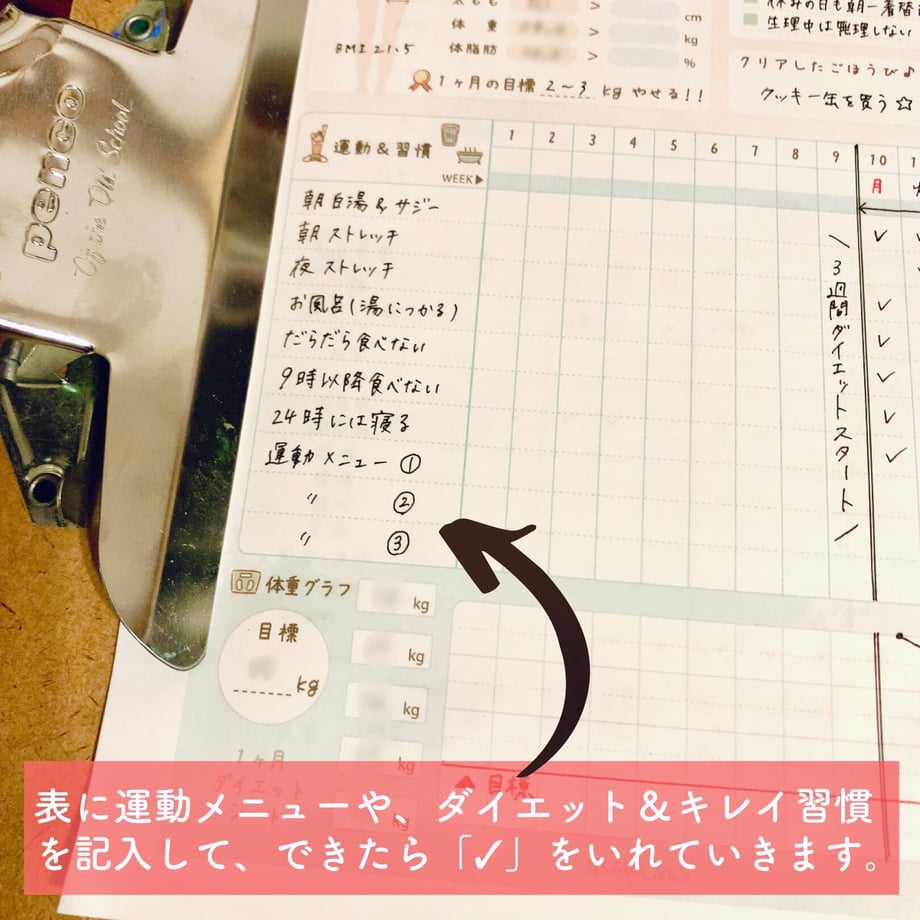 penco
On the Old School
cm
体重
kg
BMI 21.5
体脂肪
%
1ヶ月の目標 2〜3 kg やせる!!
生理中は無理しない
クリアしたごほうび♪
クッキー缶を買う☆
運動&習慣
WEEK▶
1 2 3 4 5 6 7 8 9 10
月
朝 白湯 & サジー
朝 ストレッチ
夜 ストレッチ
お風呂(湯につかる)
だらだら食べない
9時以降食べない
24時には寝る
運動メニュー ①
〃 ②
〃 ③
\3週間ダイエットスタート/
✓
✓
✓
✓
✓
✓
体重グラフ
kg
目標
kg
kg
kg
kg
1ヶ月
ダイエット
▲目標
表に運動メニューや、ダイエット&キレイ習慣
を記入して、できたら「✓」をいれていきます。